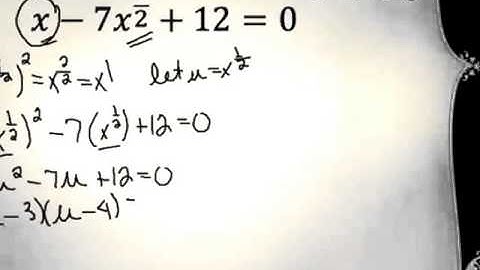 x − 7x^½ + 12 = 0
½)² = x^(2/2) = x¹  let u = x^½
x^½)² − 7(x^½) + 12 = 0
u² − 7u + 12 = 0
− 3)(u − 4) =